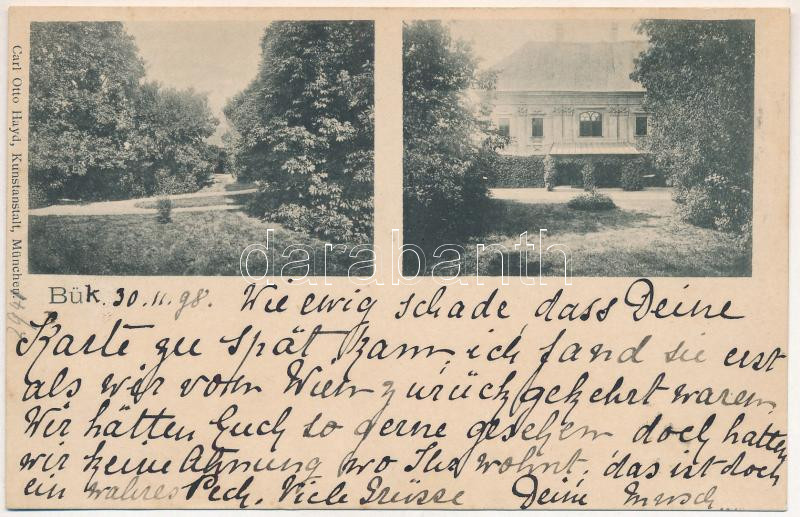 Carl Otto Hayd, Kunstanstalt, München
darabanth
Bük. 30.11.98. Wie ewig schade, dass Deine
Karte zu spät kam, ich fand sie erst
als wir vom Wien zurückgekehrt waren.
Wir hätten Euch so gerne gesehen doch hatten
wir keine Ahnung wo Ihr wohnt, das ist doch
ein wahres Pech. Viele Grüsse Deine